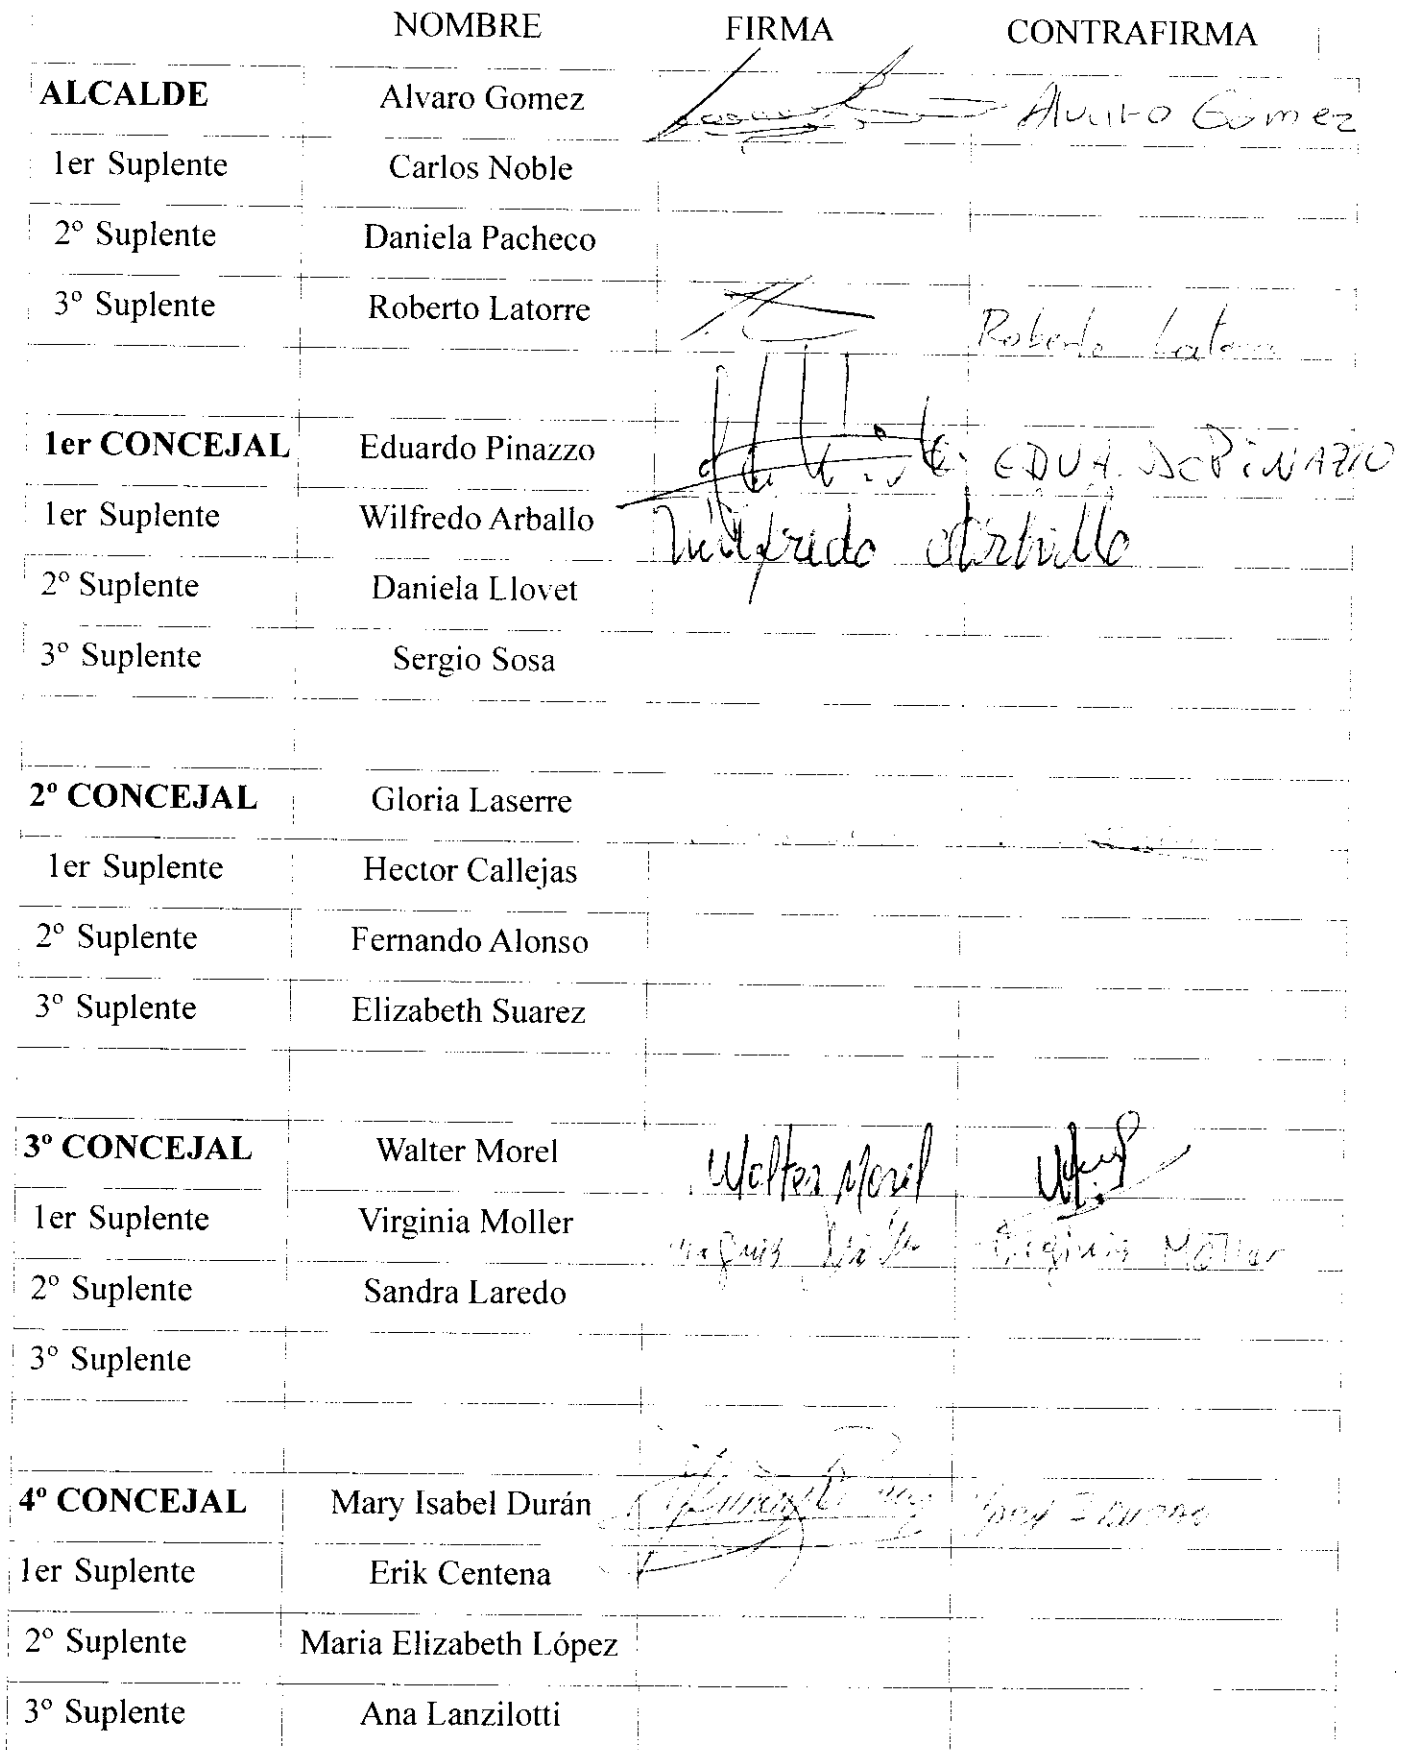 NOMBRE FIRMA CONTRAFIRMA
ALCALDE Alvaro Gomez Alvaro Gomez
1er Suplente Carlos Noble
2º Suplente Daniela Pacheco
3º Suplente Roberto Latorre Roberto Latorre
1er CONCEJAL Eduardo Pinazzo
1er Suplente Wilfredo Arballo Wilfredo Arballo
2º Suplente Daniela Llovet
3º Suplente Sergio Sosa
2º CONCEJAL Gloria Laserre
1er Suplente Hector Callejas
2º Suplente Fernando Alonso
3º Suplente Elizabeth Suarez
3º CONCEJAL Walter Morel Walter Morel
1er Suplente Virginia Moller Virginia Moller
2º Suplente Sandra Laredo
3º Suplente
4º CONCEJAL Mary Isabel Durán
1er Suplente Erik Centena
2º Suplente Maria Elizabeth López
3º Suplente Ana Lanzilotti